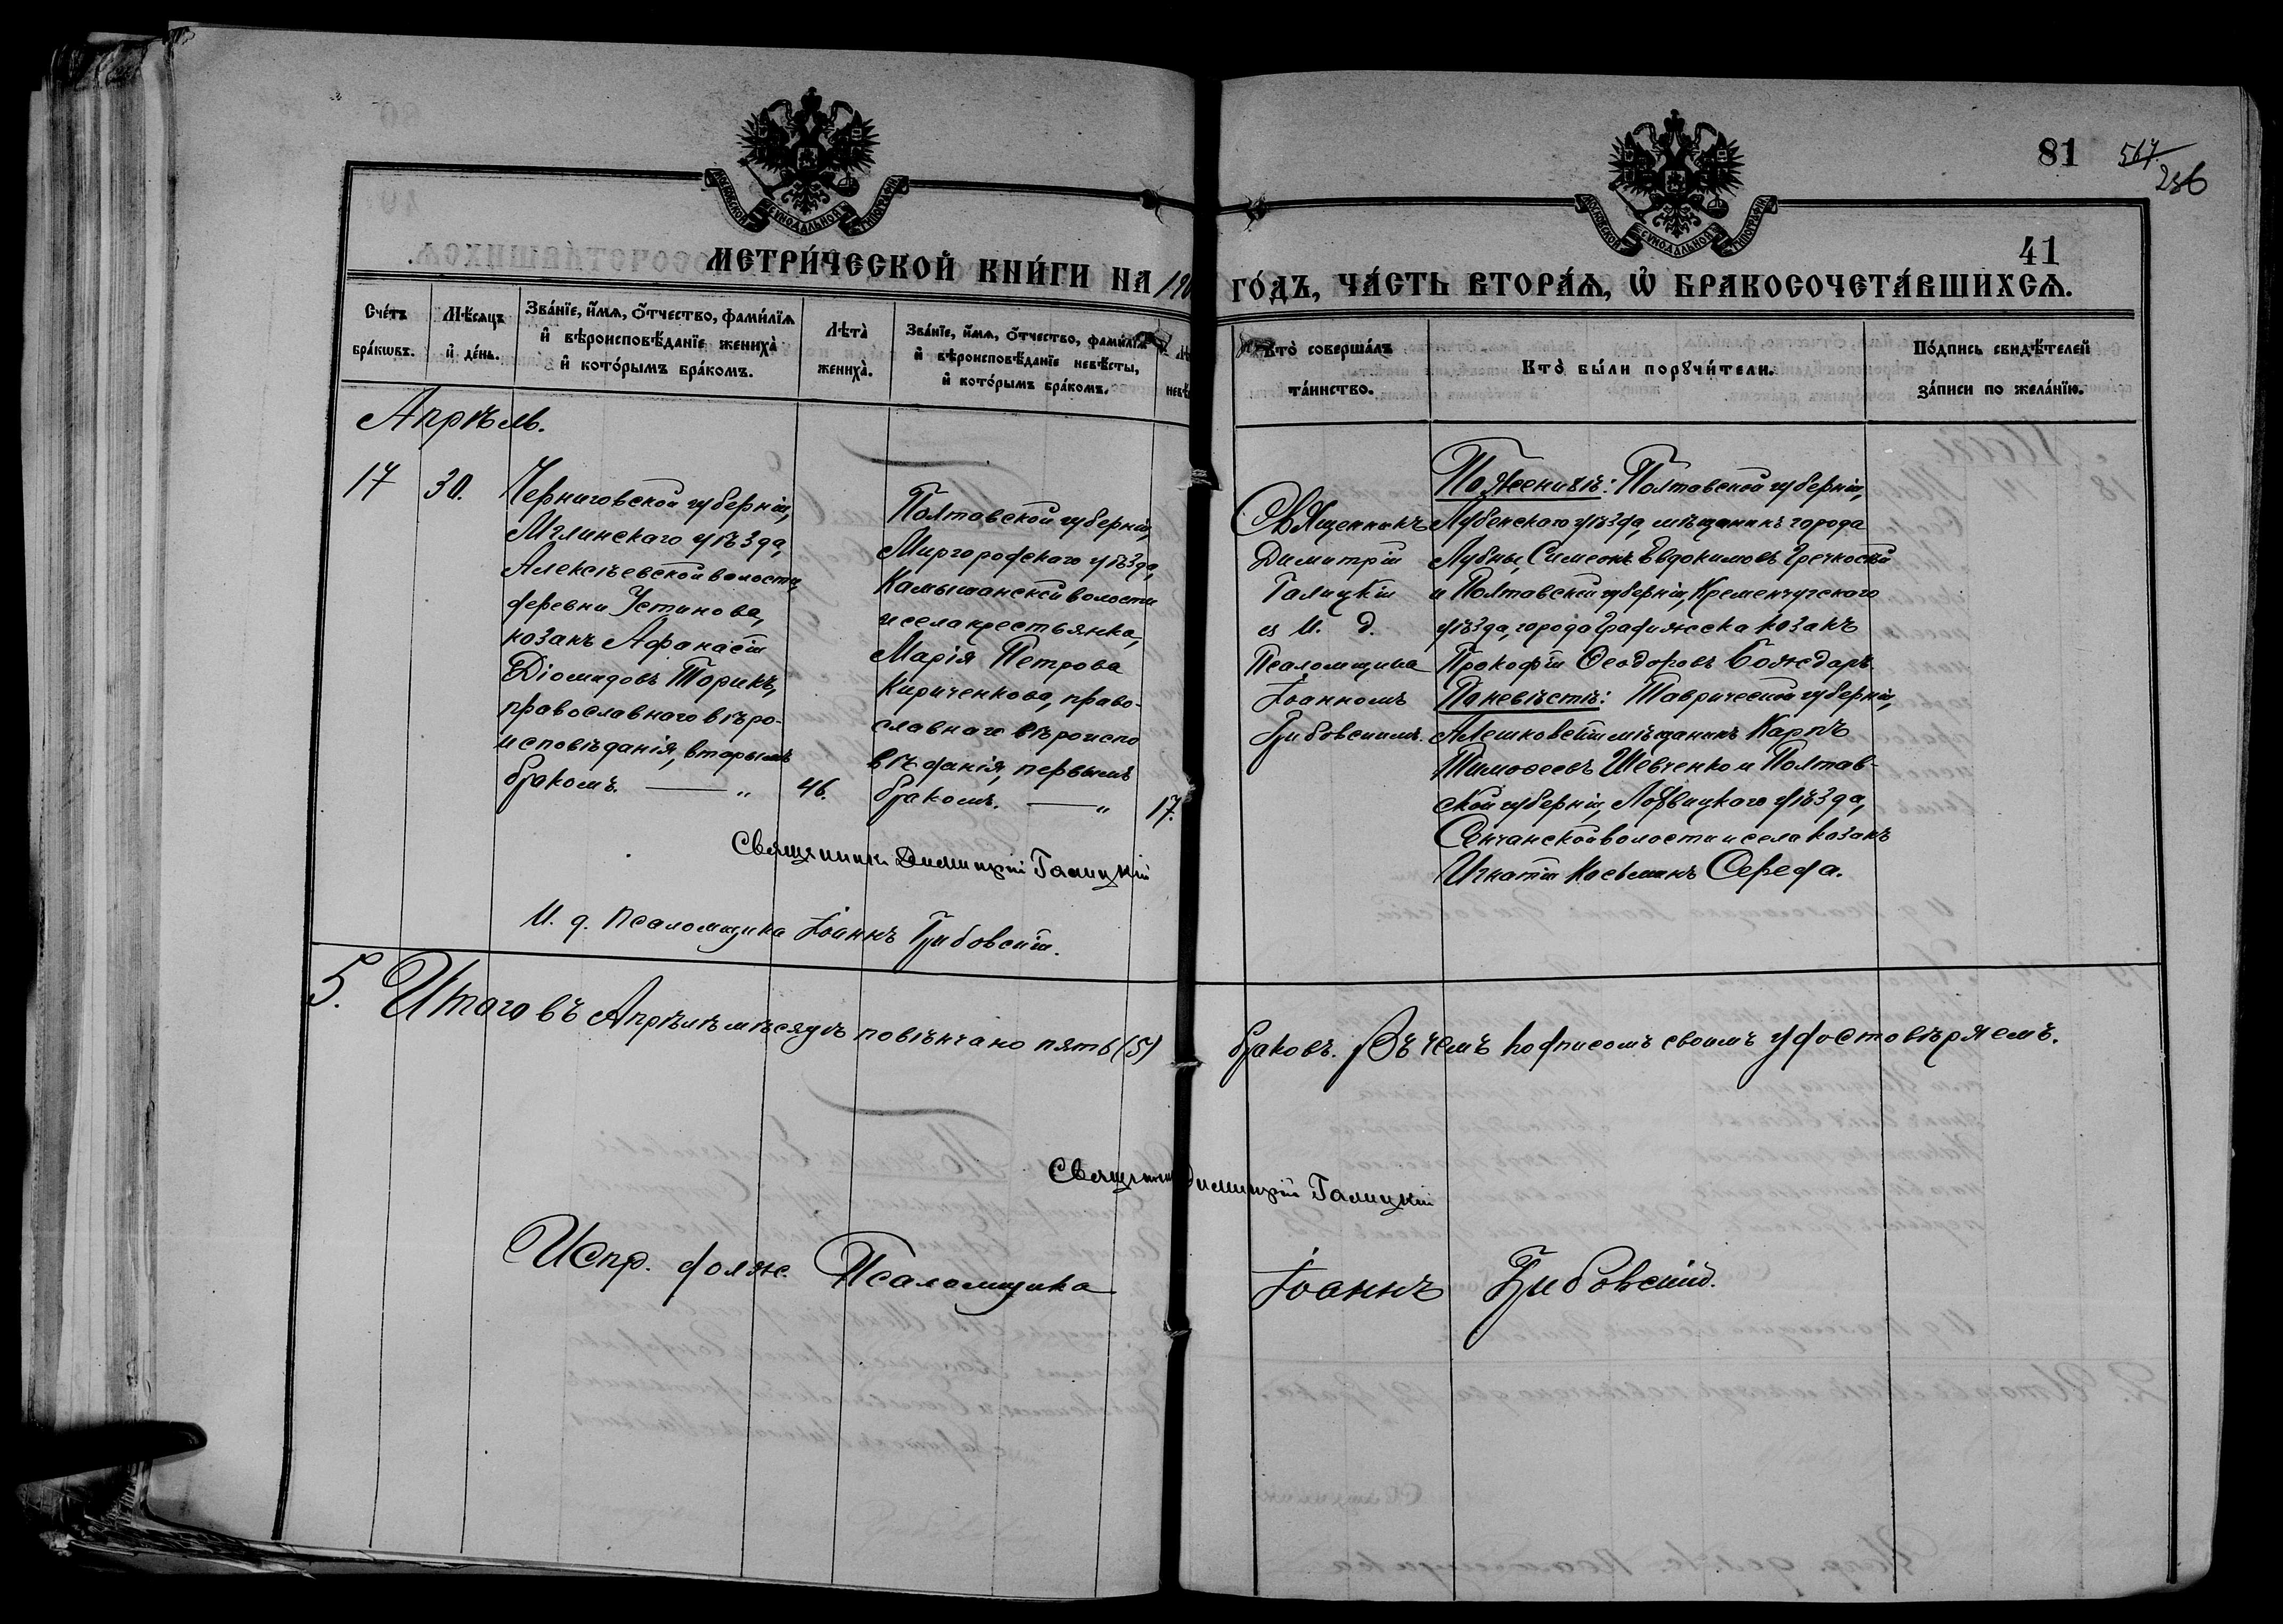 81 567
286
МОСКОВСКОЙ СУНОДАЛЬНОЙ ТИПОГРАФІИ
МОСКОВСКОЙ СУНОДАЛЬНОЙ ТИПОГРАФІИ
41
МЕТРИ́ЧЕСКОЙ КНИ́ГИ НА 190 ГО́ДЪ, ЧА́СТЬ ВТОРА́Ѧ, Ѽ БРАКОСОЧЕТА́ВШИХСѦ.
Сче́тъ бра́кѡвъ.
Мѣ́сѧцъ и҆ де́нь.
Зва́нїе, и҆́мѧ, о҆́тчество, фами́лїѧ
и҆ вѣроисповѣ́данїе жениха̀
и҆ кото́рымъ бра́комъ.
Лѣта̀ жениха̀.
Зва́нїе, и҆́мѧ, о҆́тчество, фами́лїѧ
и҆ вѣроисповѣ́данїе невѣ́сты,
и҆ кото́рымъ бра́комъ.
Кто̀ соверша́лъ
та́инство.
Кто̀ бы́ли порꙋчи́тели.
По́дпись свидѣ́телей
за́писи по жела́нїю.
Апрѣль.
17
30.
Черниговской губерніи,
Мглинскаго уѣзда,
Алексѣевской волости,
деревни Устинова,
козакъ Афанасій
Діомидовъ Торикъ,
православнаго вѣро-
исповѣданія, вторымъ
бракомъ. — „
46.
Полтавской губерніи,
Миргородскаго уѣзда,
Камышанской волости
и села крестьянка,
Марія Петрова
Кириченкова, право-
славнаго вѣроиспо
вѣданія, первымъ
бракомъ. — „
17.
Священникъ
Димитрій
Галицкій
съ И. д.
Псаломщика
Іоанномъ
Грибовскимъ.
По женихѣ: Полтавской губерніи,
Лубенскаго уѣзда, мѣщанинъ города
Лубны, Симеонъ Евдокимовъ Гречкосѣй
и Полтавской губерніи, Кременчугскаго
уѣзда, города Градижска козакъ
Прокофій Ѳеодоровъ Божедаръ
По невѣстѣ: Таврической губерніи,
Алешковскій мѣщанинъ Карпъ
Тимоѳеевъ Шевченко и Полтав-
ской губерніи, Лохвицкаго уѣзда,
Сенчанской волости и села козакъ
Игнатій Косьминъ Середа.
Священникъ Димитрій Галицкій
И. д. Псаломщика Іоаннъ Грибовскій.
5. Итого въ Апрѣлѣ мѣсяцѣ повѣнчано пять (5) браковъ. Въ чемъ подписомъ своимъ удостовѣряемъ.
Священникъ Димитрій Галицкій
Испр. долж. Псаломщика Іоаннъ Грибовскій.